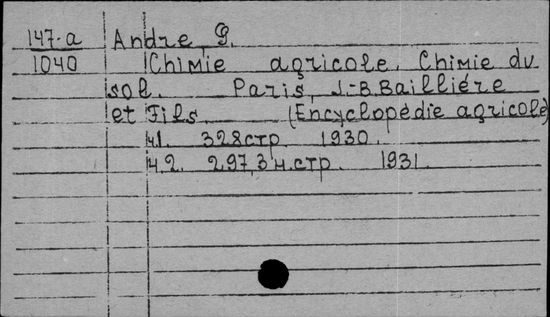 147-a Andre, G.
1040 Chimie agricole. Chimie du
sol. Paris, J.-B. Baillière
et Fils. (Encyclopédie agricole)
ч.1. 328 стр. 1930.
ч.2. 297, 3 н. стр. 1931.